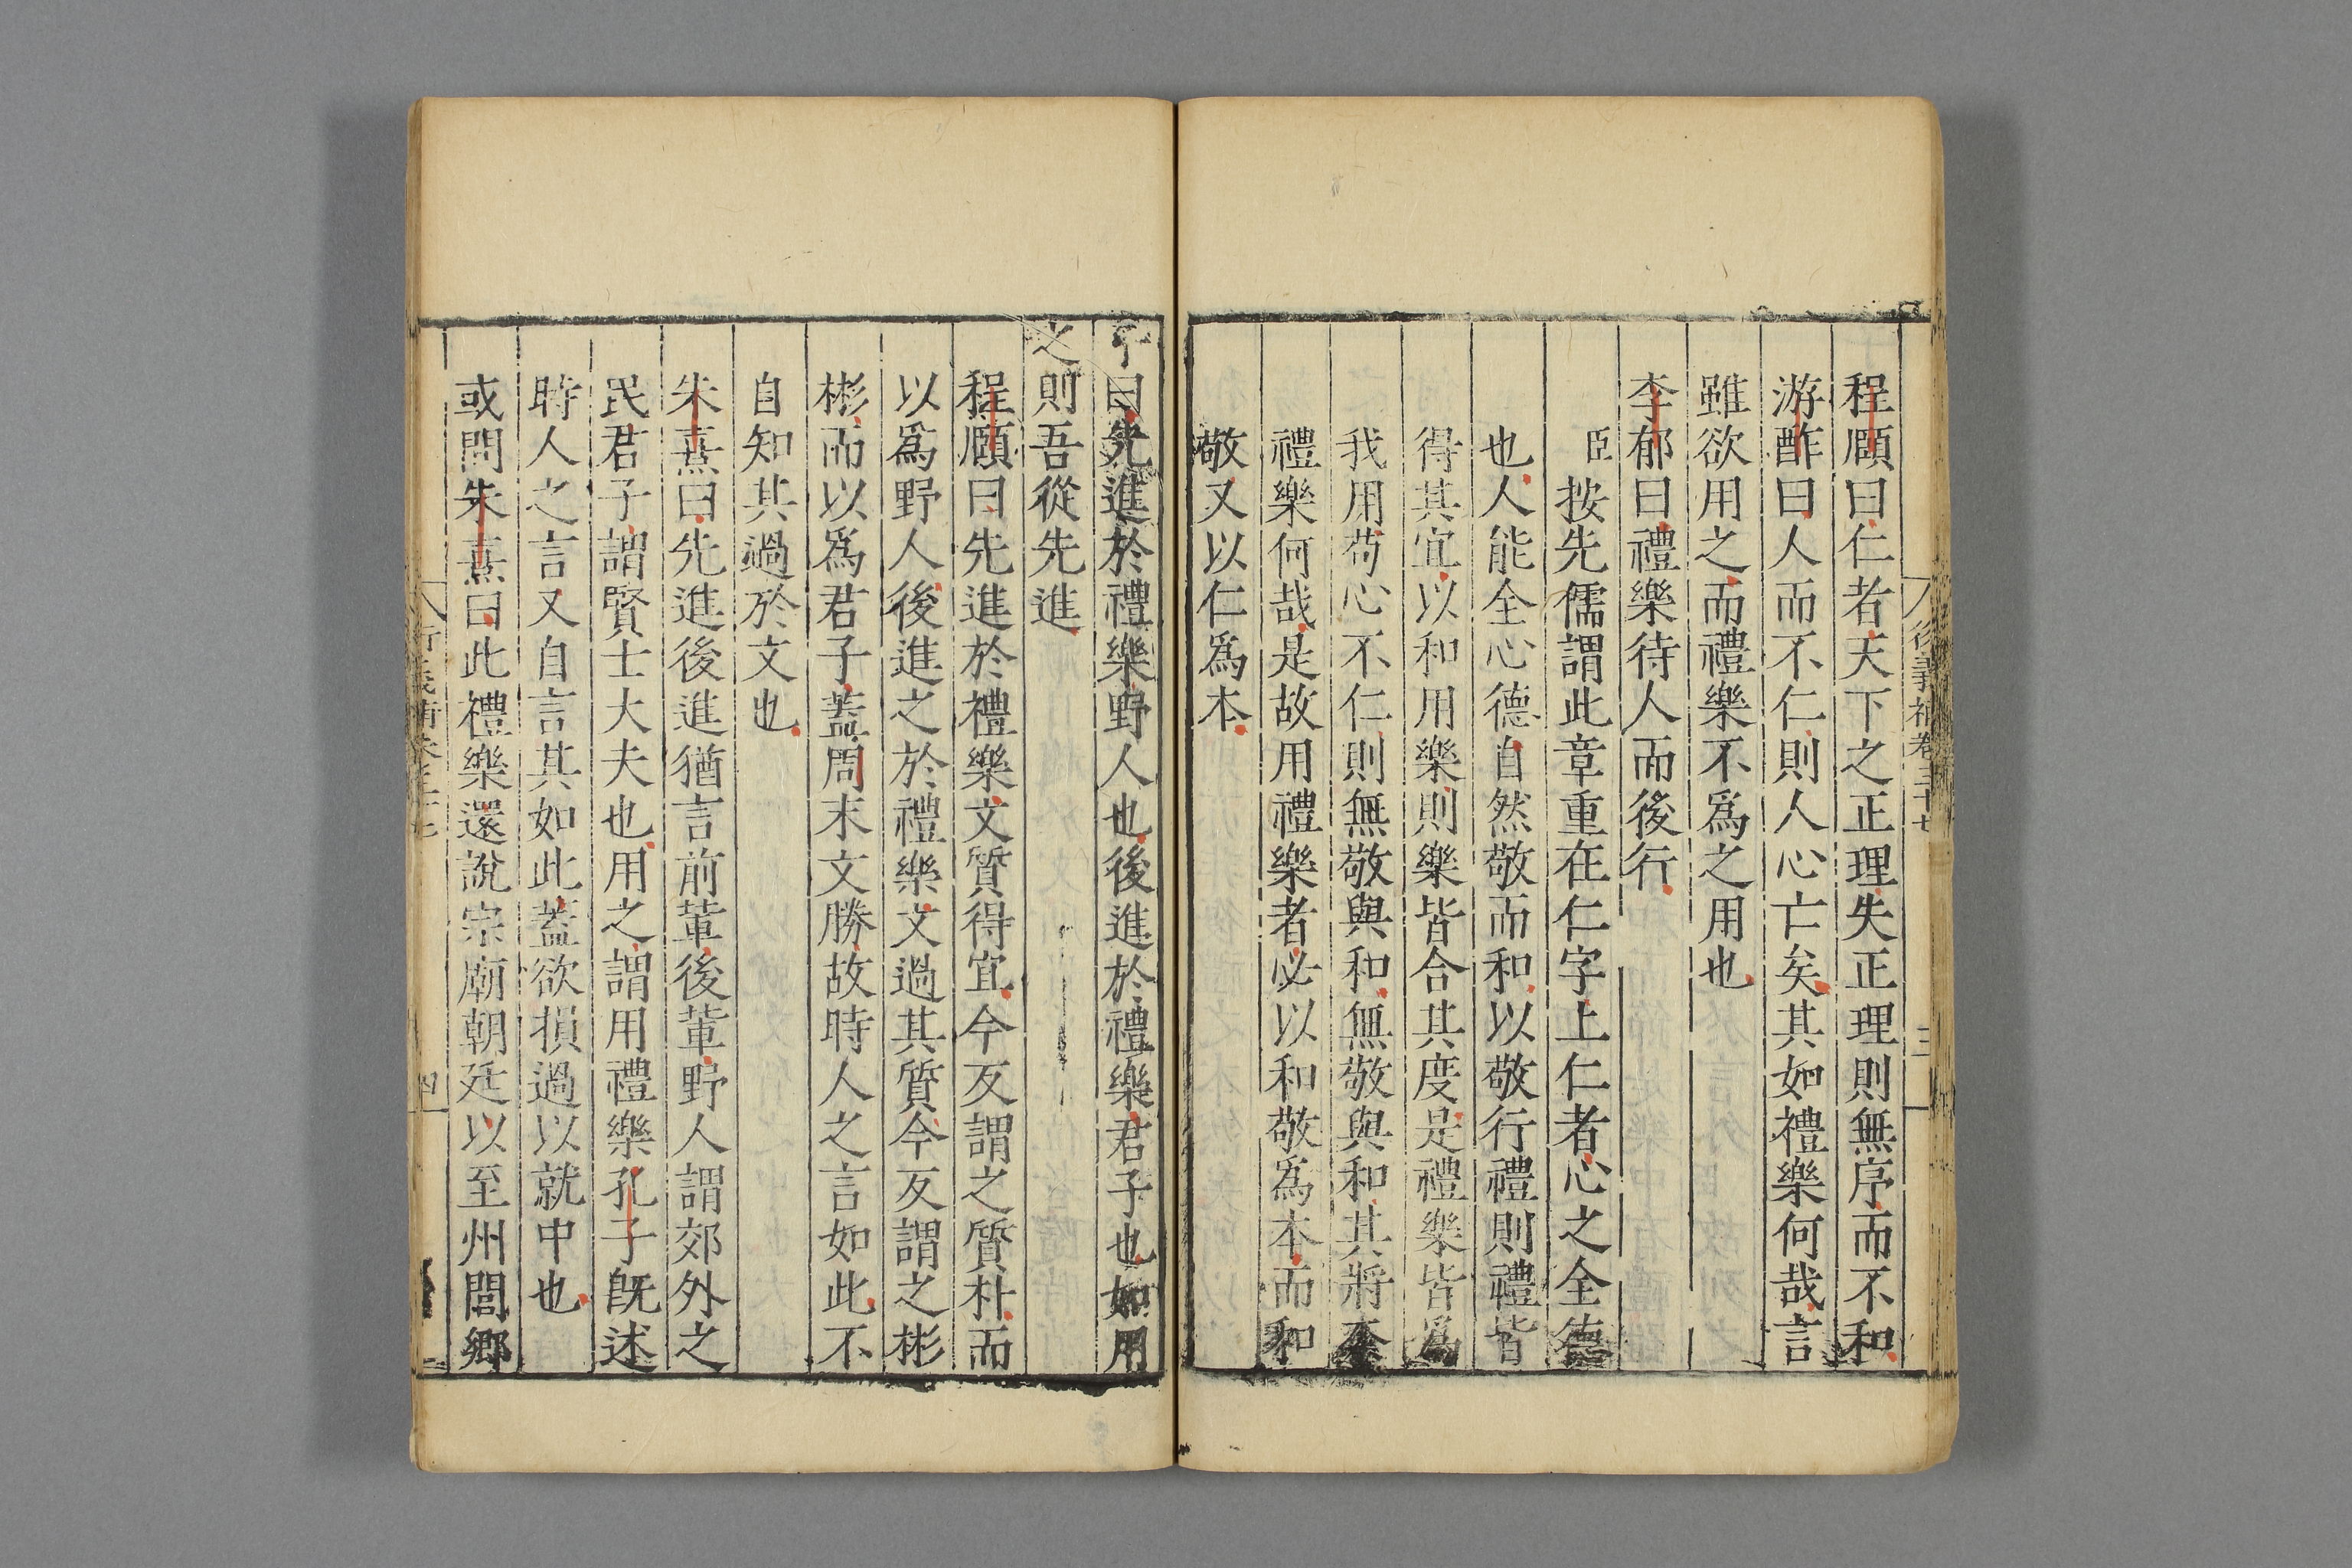 程頤曰仁者天下之正理失正理則無序而不和
游酢曰人而不仁則人心亡矣其如禮樂何哉言
雖欲用之而禮樂不爲之用也
李郁曰禮樂待人而後行
臣按先儒謂此章重在仁字上仁者心之全德
也人能全心德自然敬而和以敬行禮則禮皆
得其宜以和用樂則樂皆合其度是禮樂皆爲
我用苟心不仁則無敬與和無敬與和其將奈
禮樂何哉是故用禮樂者必以和敬爲本而和
敬又以仁爲本
子曰先進於禮樂野人也後進於禮樂君子也如用
之則吾從先進
程頤曰先進於禮樂文質得宜今反謂之質朴而
以爲野人後進之於禮樂文過其質今反謂之彬
彬而以爲君子蓋周末文勝故時人之言如此不
自知其過於文也
朱熹曰先進後進猶言前輩後輩野人謂郊外之
民君子謂賢士大夫也用之謂用禮樂孔子旣述
時人之言又自言其如此蓋欲損過以就中也
或問朱熹曰此禮樂還說宗廟朝廷以至州閭鄉